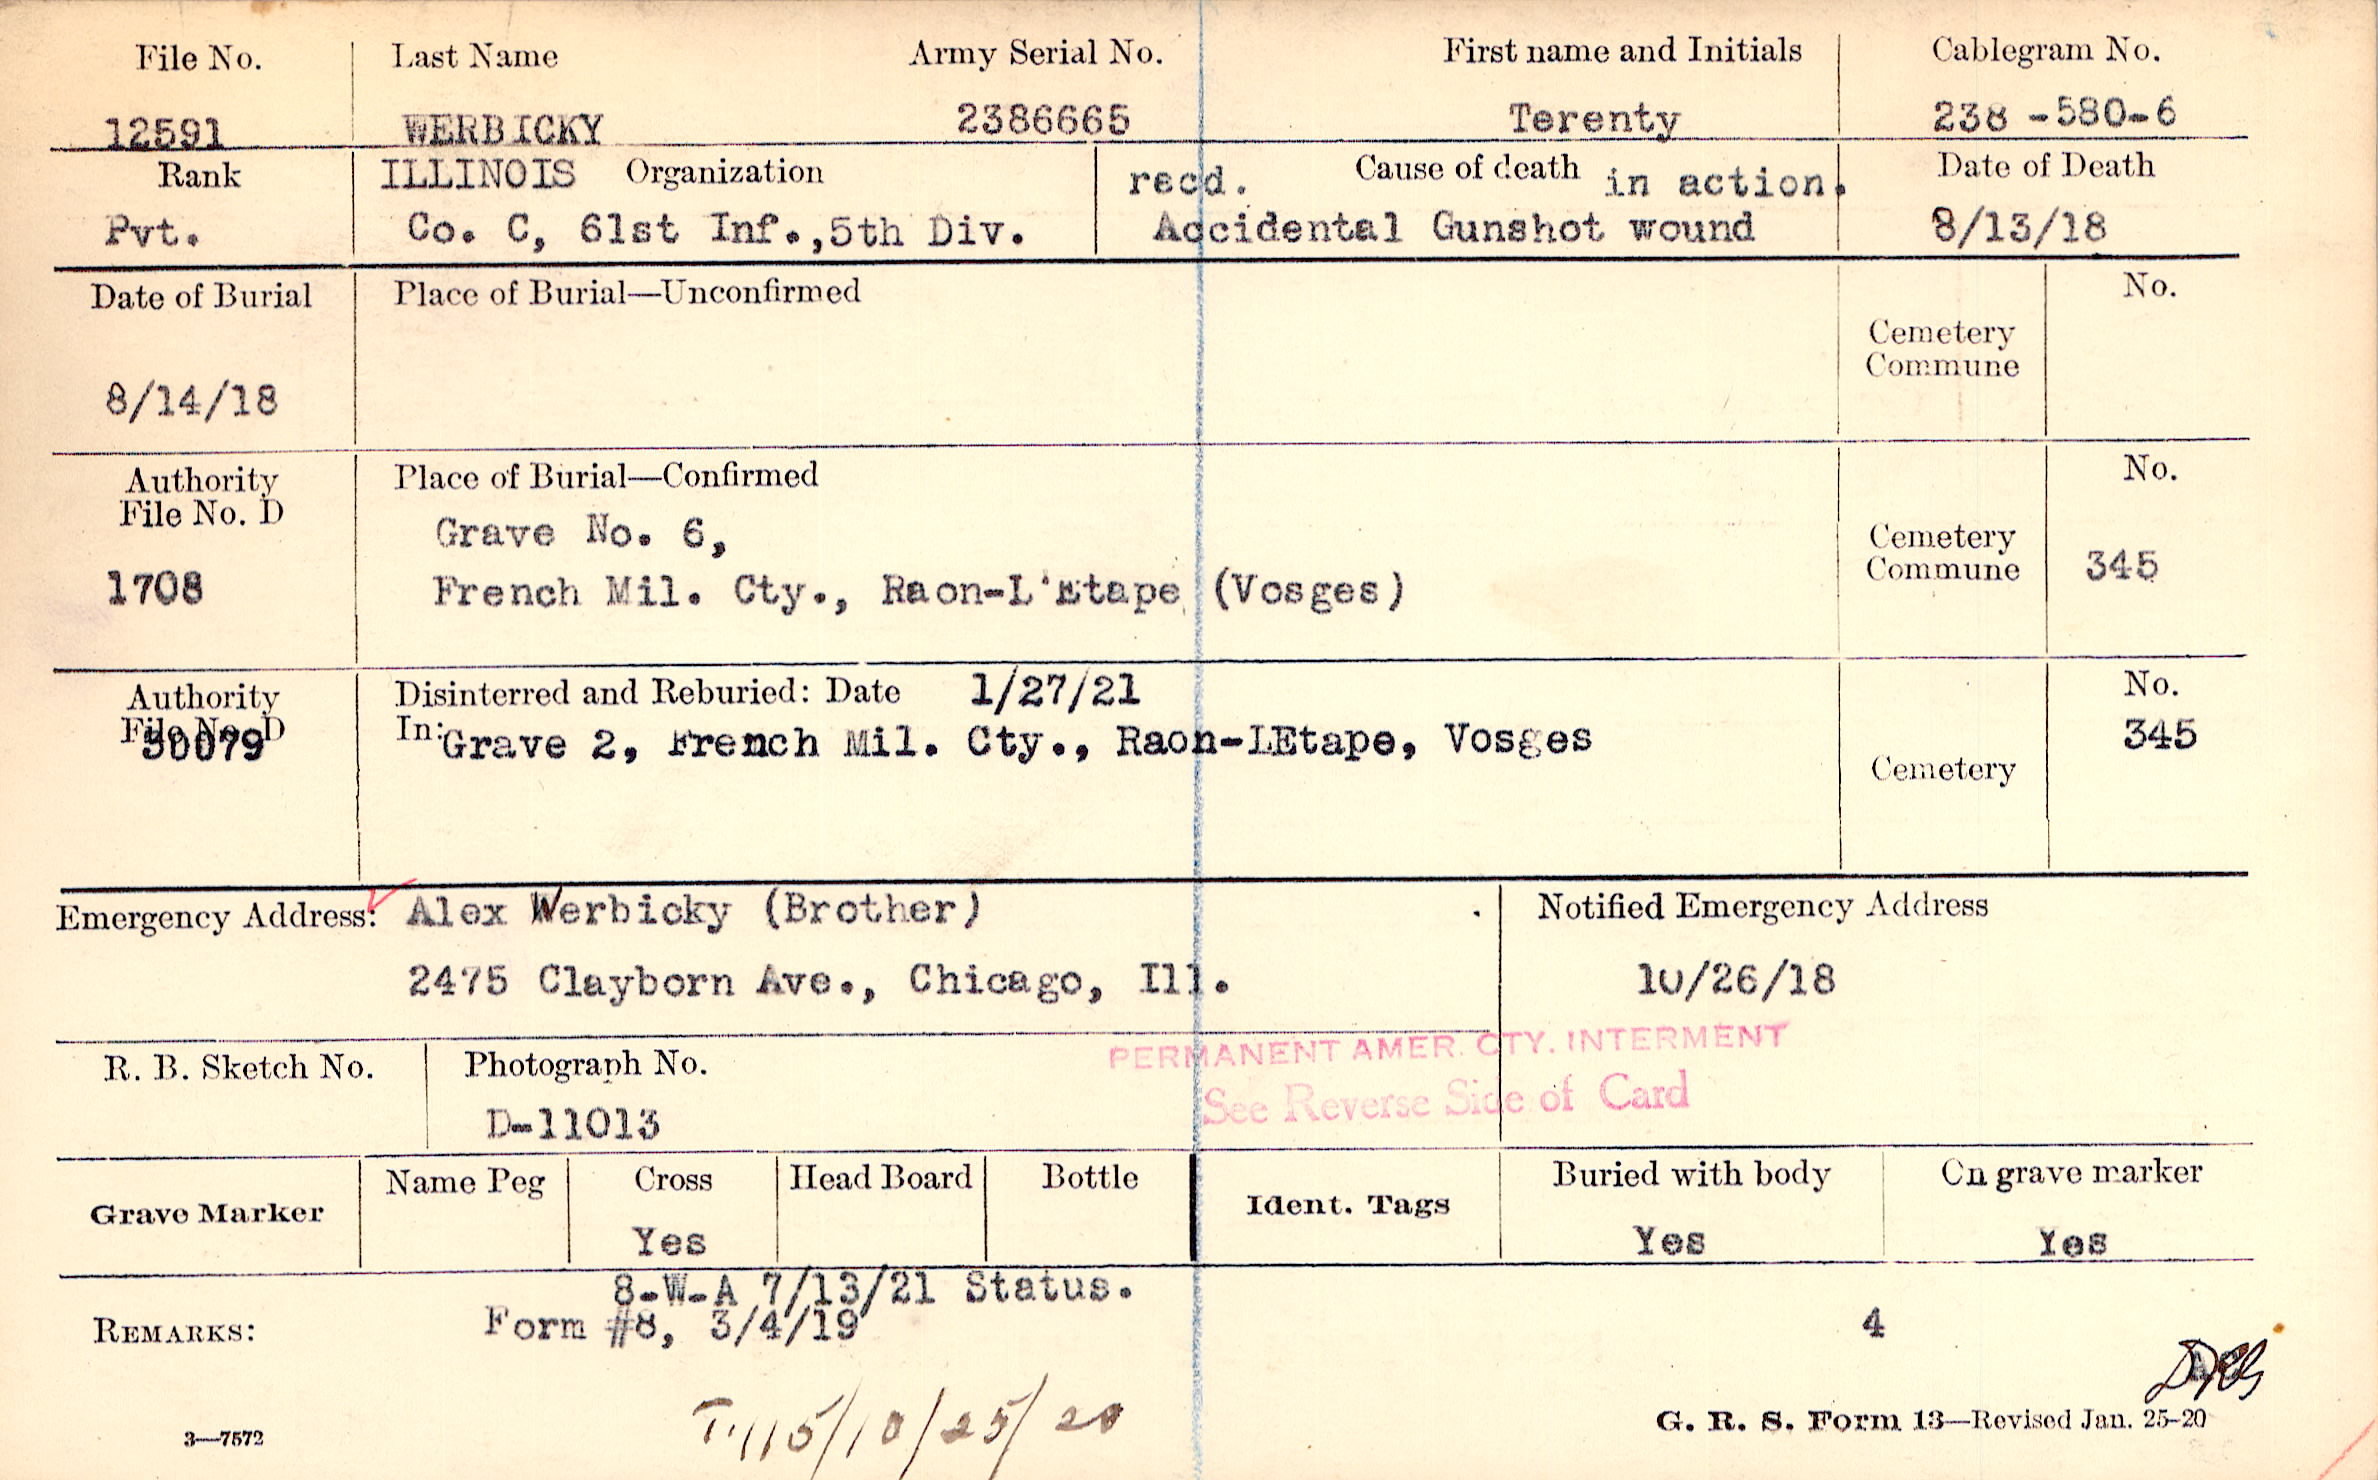 File No. Last Name Army Serial No. First name and Initials Cablegram No.
12591 WERBICKY 2386665 Terenty 238 -580-6
Rank ILLINOIS Organization recd. Cause of death in action. Date of Death
Pvt. Co. C, 61st Inf.,5th Div. Accidental Gunshot wound 8/13/18
Date of Burial Place of Burial—Unconfirmed No.
Cemetery
Commune
8/14/18
Authority Place of Burial—Confirmed No.
File No. D
Grave No. 6,
Cemetery
Commune 345
1708 French Mil. Cty., Raon-L'Etape (Vosges)
Authority Disinterred and Reburied: Date 1/27/21 No.
File No. D In: Grave 2, French Mil. Cty., Raon-LEtape, Vosges 345
30079
Cemetery
Emergency Address: Alex Werbicky (Brother) Notified Emergency Address
2475 Clayborn Ave., Chicago, Ill. 10/26/18
PERMANENT AMER. CTY. INTERMENT
See Reverse Side of Card
R. B. Sketch No. Photograph No.
D-11013
Grave Marker Name Peg Cross Head Board Bottle Ident. Tags Buried with body On grave marker
Yes Yes Yes
8-W-A 7/13/21 Status.
REMARKS: Form #8, 3/4/19 4
10/25/20
3—7572 G. R. S. Form 13—Revised Jan. 25-20